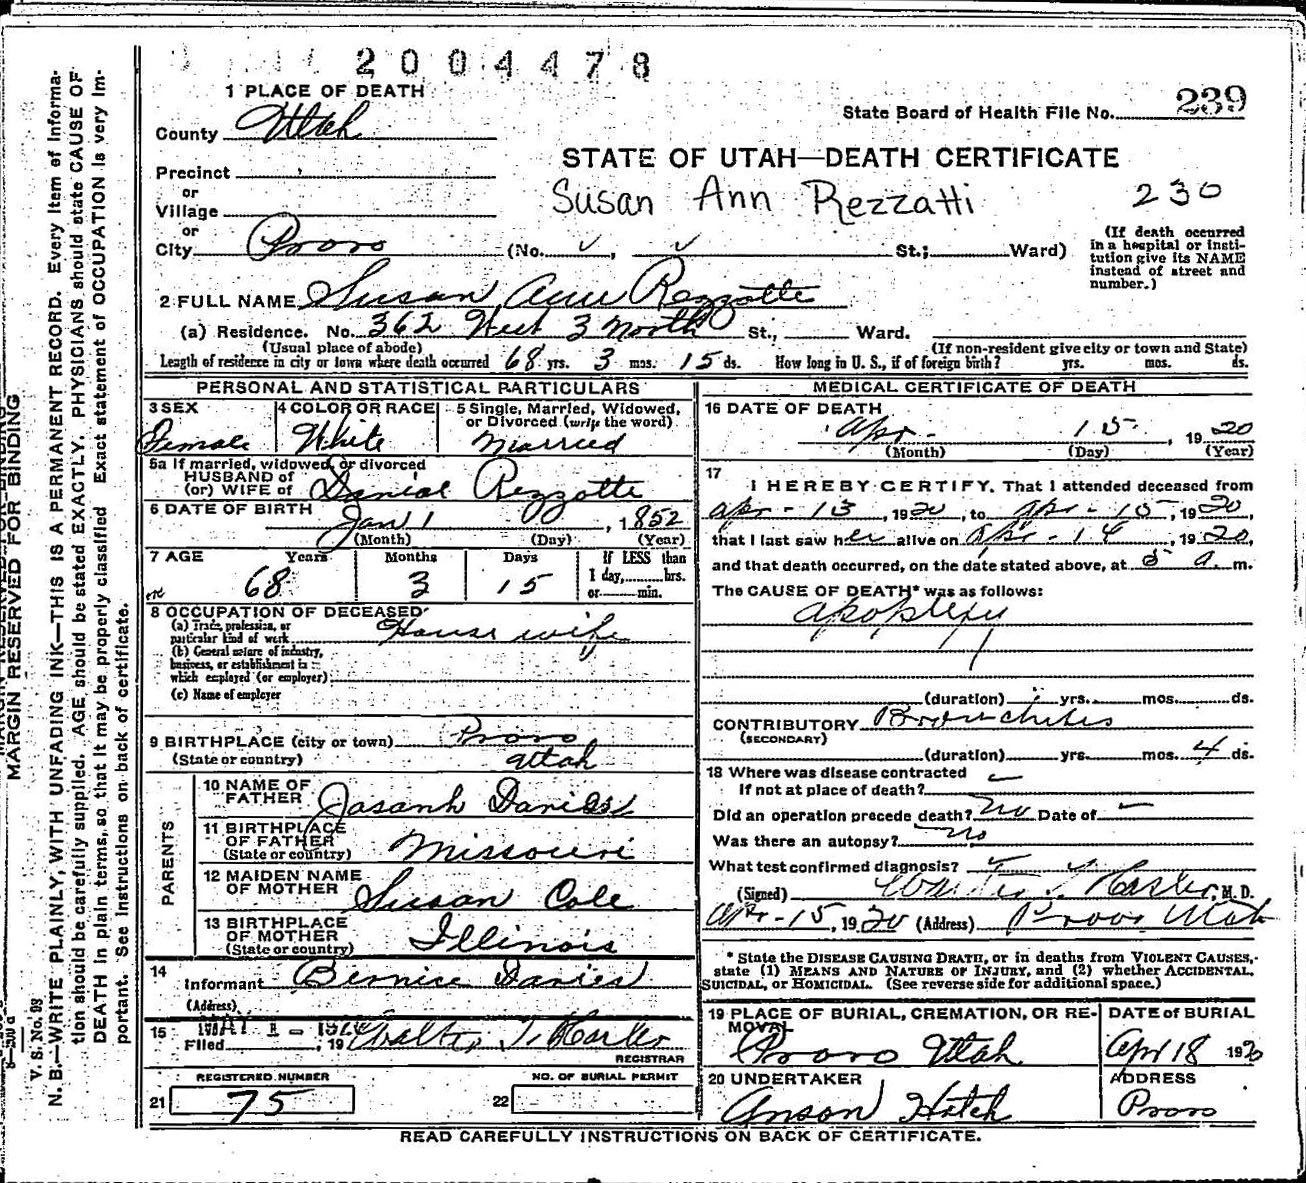 2004478
1 PLACE OF DEATH
State Board of Health File No. 239
County Utah
STATE OF UTAH—DEATH CERTIFICATE
Precinct
Susan Ann Rezzatti 230
or
Village
or
City Provo (No. ✓, ✓ St.; Ward)
(If death occurred in a hospital or insti-
tution give its NAME
instead of street and
number.)
2 FULL NAME Susan Ann Rezzotte
(a) Residence. No. 362 West 3 North St., Ward.
(Usual place of abode) (If non-resident give city or town and State)
Length of residence in city or town where death occurred 68 yrs. 3 mos. 15 ds. How long in U. S., if of foreign birth? yrs. mos. ds.
PERSONAL AND STATISTICAL PARTICULARS
3 SEX
Female
4 COLOR OR RACE
White
5 Single, Married, Widowed,
or Divorced (write the word)
Married
5a If married, widowed, or divorced
HUSBAND of
(or) WIFE of Danial Rezzotte
6 DATE OF BIRTH
Jan 1, 1852
(Month) (Day) (Year)
7 AGE Years Months Days If LESS than
1 day, hrs.
or min.
68 3 15
8 OCCUPATION OF DECEASED
(a) Trade, profession, or
particular kind of work House wife
(b) General nature of industry,
business, or establishment in
which employed (or employer)
(c) Name of employer
9 BIRTHPLACE (city or town) Provo
(State or country) Utah
PARENTS
10 NAME OF
FATHER Davies
11 BIRTHPLACE
OF FATHER
(State or country) Missouri
12 MAIDEN NAME
OF MOTHER Susan Cole
13 BIRTHPLACE
OF MOTHER
(State or country) Illinois
14
Informant Bernice Davies
(Address)
15 MAY 1 - 1920
Filed, 19 Walter T. Hasler
REGISTRAR
REGISTERED NUMBER NO. OF BURIAL PERMIT
21 75 22
MEDICAL CERTIFICATE OF DEATH
16 DATE OF DEATH
Apr - 15, 1920
(Month) (Day) (Year)
17
I HEREBY CERTIFY, That I attended deceased from
Apr - 13, 1920, to Apr - 15, 1920,
that I last saw her alive on Apr - 14, 1920,
and that death occurred, on the date stated above, at 5 a. m.
The CAUSE OF DEATH* was as follows:
apoplexy
(duration) yrs. mos. ds.
CONTRIBUTORY Bronchites
(SECONDARY)
(duration) yrs. mos. 4 ds.
18 Where was disease contracted
if not at place of death?
Did an operation precede death? No Date of
Was there an autopsy? No
What test confirmed diagnosis?
(Signed) Walter T. Hasler, M. D.
Apr - 15, 1920 (Address) Provo Utah
* State the DISEASE CAUSING DEATH, or in deaths from VIOLENT CAUSES,
state (1) MEANS AND NATURE OF INJURY, and (2) whether ACCIDENTAL,
SUICIDAL, or HOMICIDAL. (See reverse side for additional space.)
19 PLACE OF BURIAL, CREMATION, OR RE-
MOVAL
Provo Utah
DATE of BURIAL
Apr 18 1920
20 UNDERTAKER
Anson Hatch
ADDRESS
Provo
READ CAREFULLY INSTRUCTIONS ON BACK OF CERTIFICATE.
MARGIN RESERVED FOR BINDING
V. S. No. 93
N. B.—WRITE PLAINLY, WITH UNFADING INK—THIS IS A PERMANENT RECORD. Every item of informa-
tion should be carefully supplied. AGE should be stated EXACTLY. PHYSICIANS should state CAUSE OF
DEATH in plain terms, so that it may be properly classified. Exact statement of OCCUPATION is very im-
portant. See instructions on back of certificate.